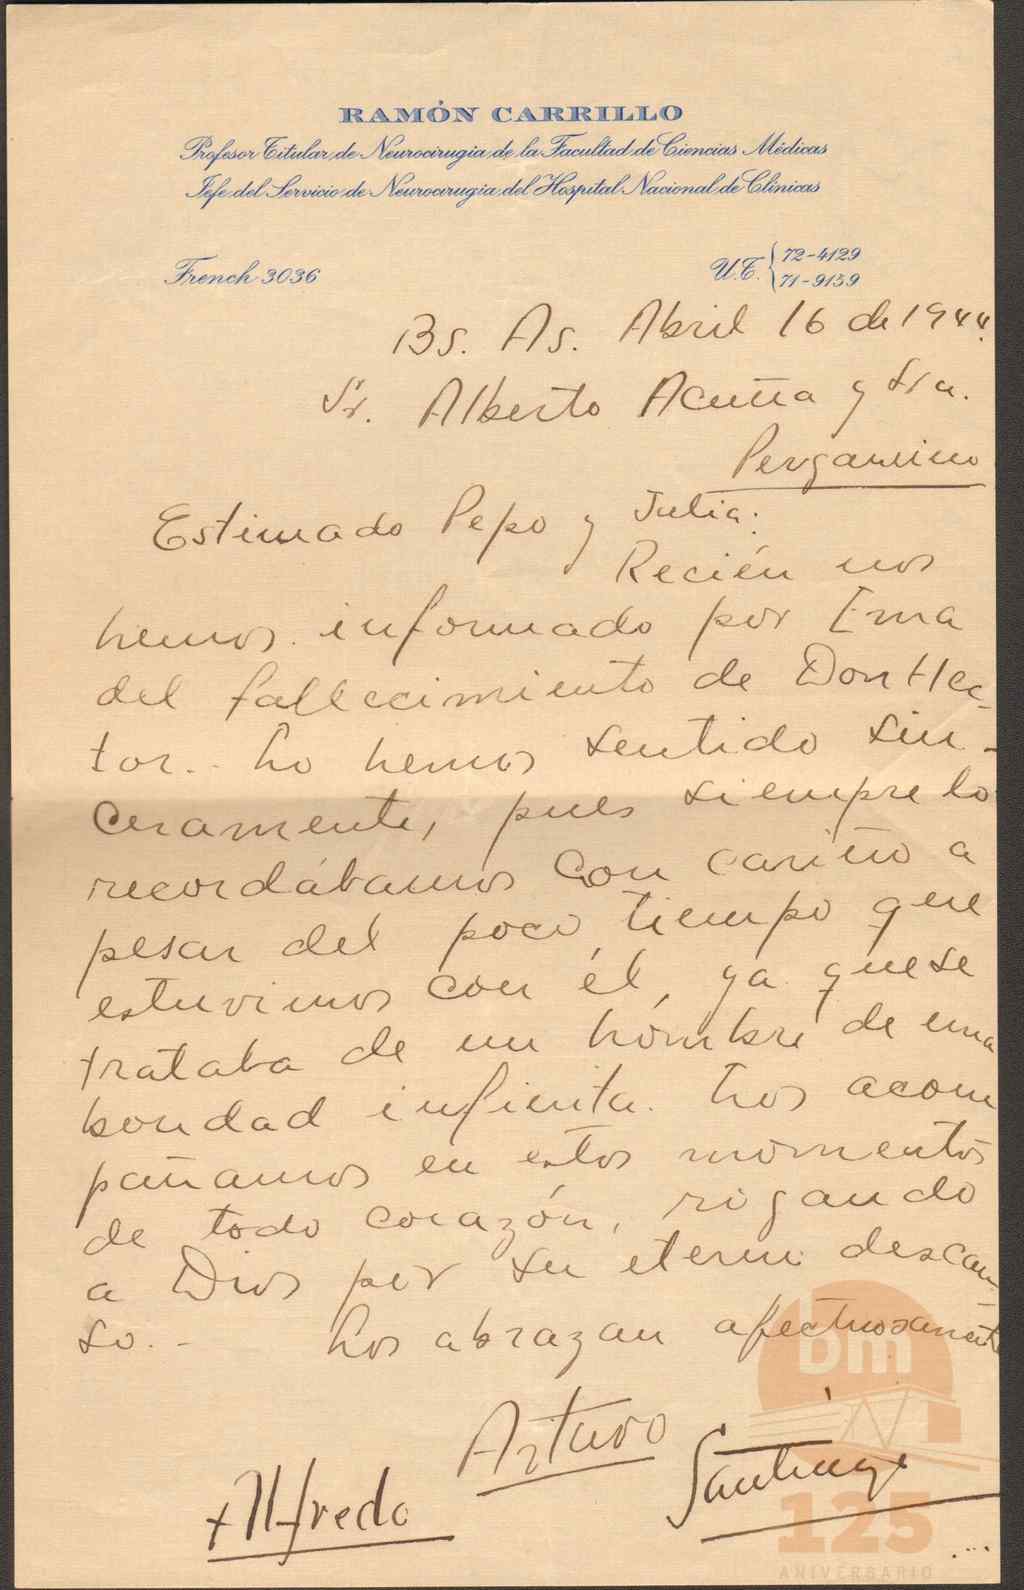 RAMÓN CARRILLO
Profesor Titular de Neurocirugía de la Facultad de Ciencias Médicas
Jefe del Servicio de Neurocirugía del Hospital Nacional de Clínicas
French 3036
U.T. { 72-4129
71-9159
Bs. As. Abril 16 de 1944.
Sr. Alberto Acuña y Sra.
Pergamino
Estimado Pepo y Julia:
Recién nos
hemos informado por Ema
del fallecimiento de Don Hec-
tor.- Lo hemos sentido sin-
ceramente, pues siempre lo
recordábamos con cariño a
pesar del poco tiempo que
estuvimos con él, ya que se
trataba de un hombre de una
bondad infinita. Los acom
pañamos en estos momentos
de todo corazón, rogando
a Dios por su eterno descan-
so.- Los abrazan afectuosamente
Arturo
Santiago
Alfredo
bm
125
ANIVERSARIO